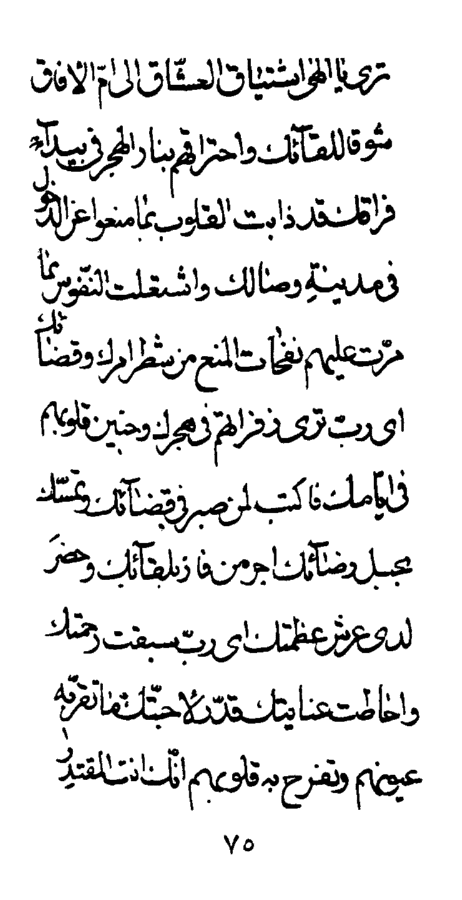 ترى يا الهى اشتياق العشّاق الى امّ الآفاق
شوقا للقآئك واحتراقهم بنار الهجر فى بيدآء
فراقك قد ذابت القلوب بما منعوا عن الدّخول
فى مدينة وصالك واشتعلت النّفوس بما
مرّت عليهم نفحات المنع من شطر امرك وقضائك
اى ربّ ترى زفراتهم فى هجرك وحنين قلوبهم
فى ايّامك فاكتب لمن صبر فى قضآئك وتمسّك
بحبل رضآئك اجر من فاز بلقآئك وحضَر
لدى عرش عظمتك اى ربّ سبقت رحمتك
واحاطت عنايتك قدّر لاحبّتك ما تقرّ به
عيونهم وتفرح به قلوبهم انّك انت المقتدر
٧٥